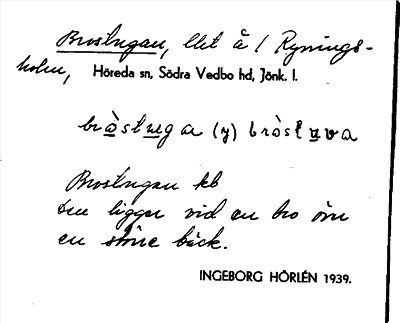 Brostugan, lht å / Rynings-
holm, Höreda sn, Södra Vedbo hd, Jönk. l.
bròstuga (y) bròstuva
Brostugan kb
den ligger vid en bro över
en större bäck.
INGEBORG HÖRLÉN 1939.